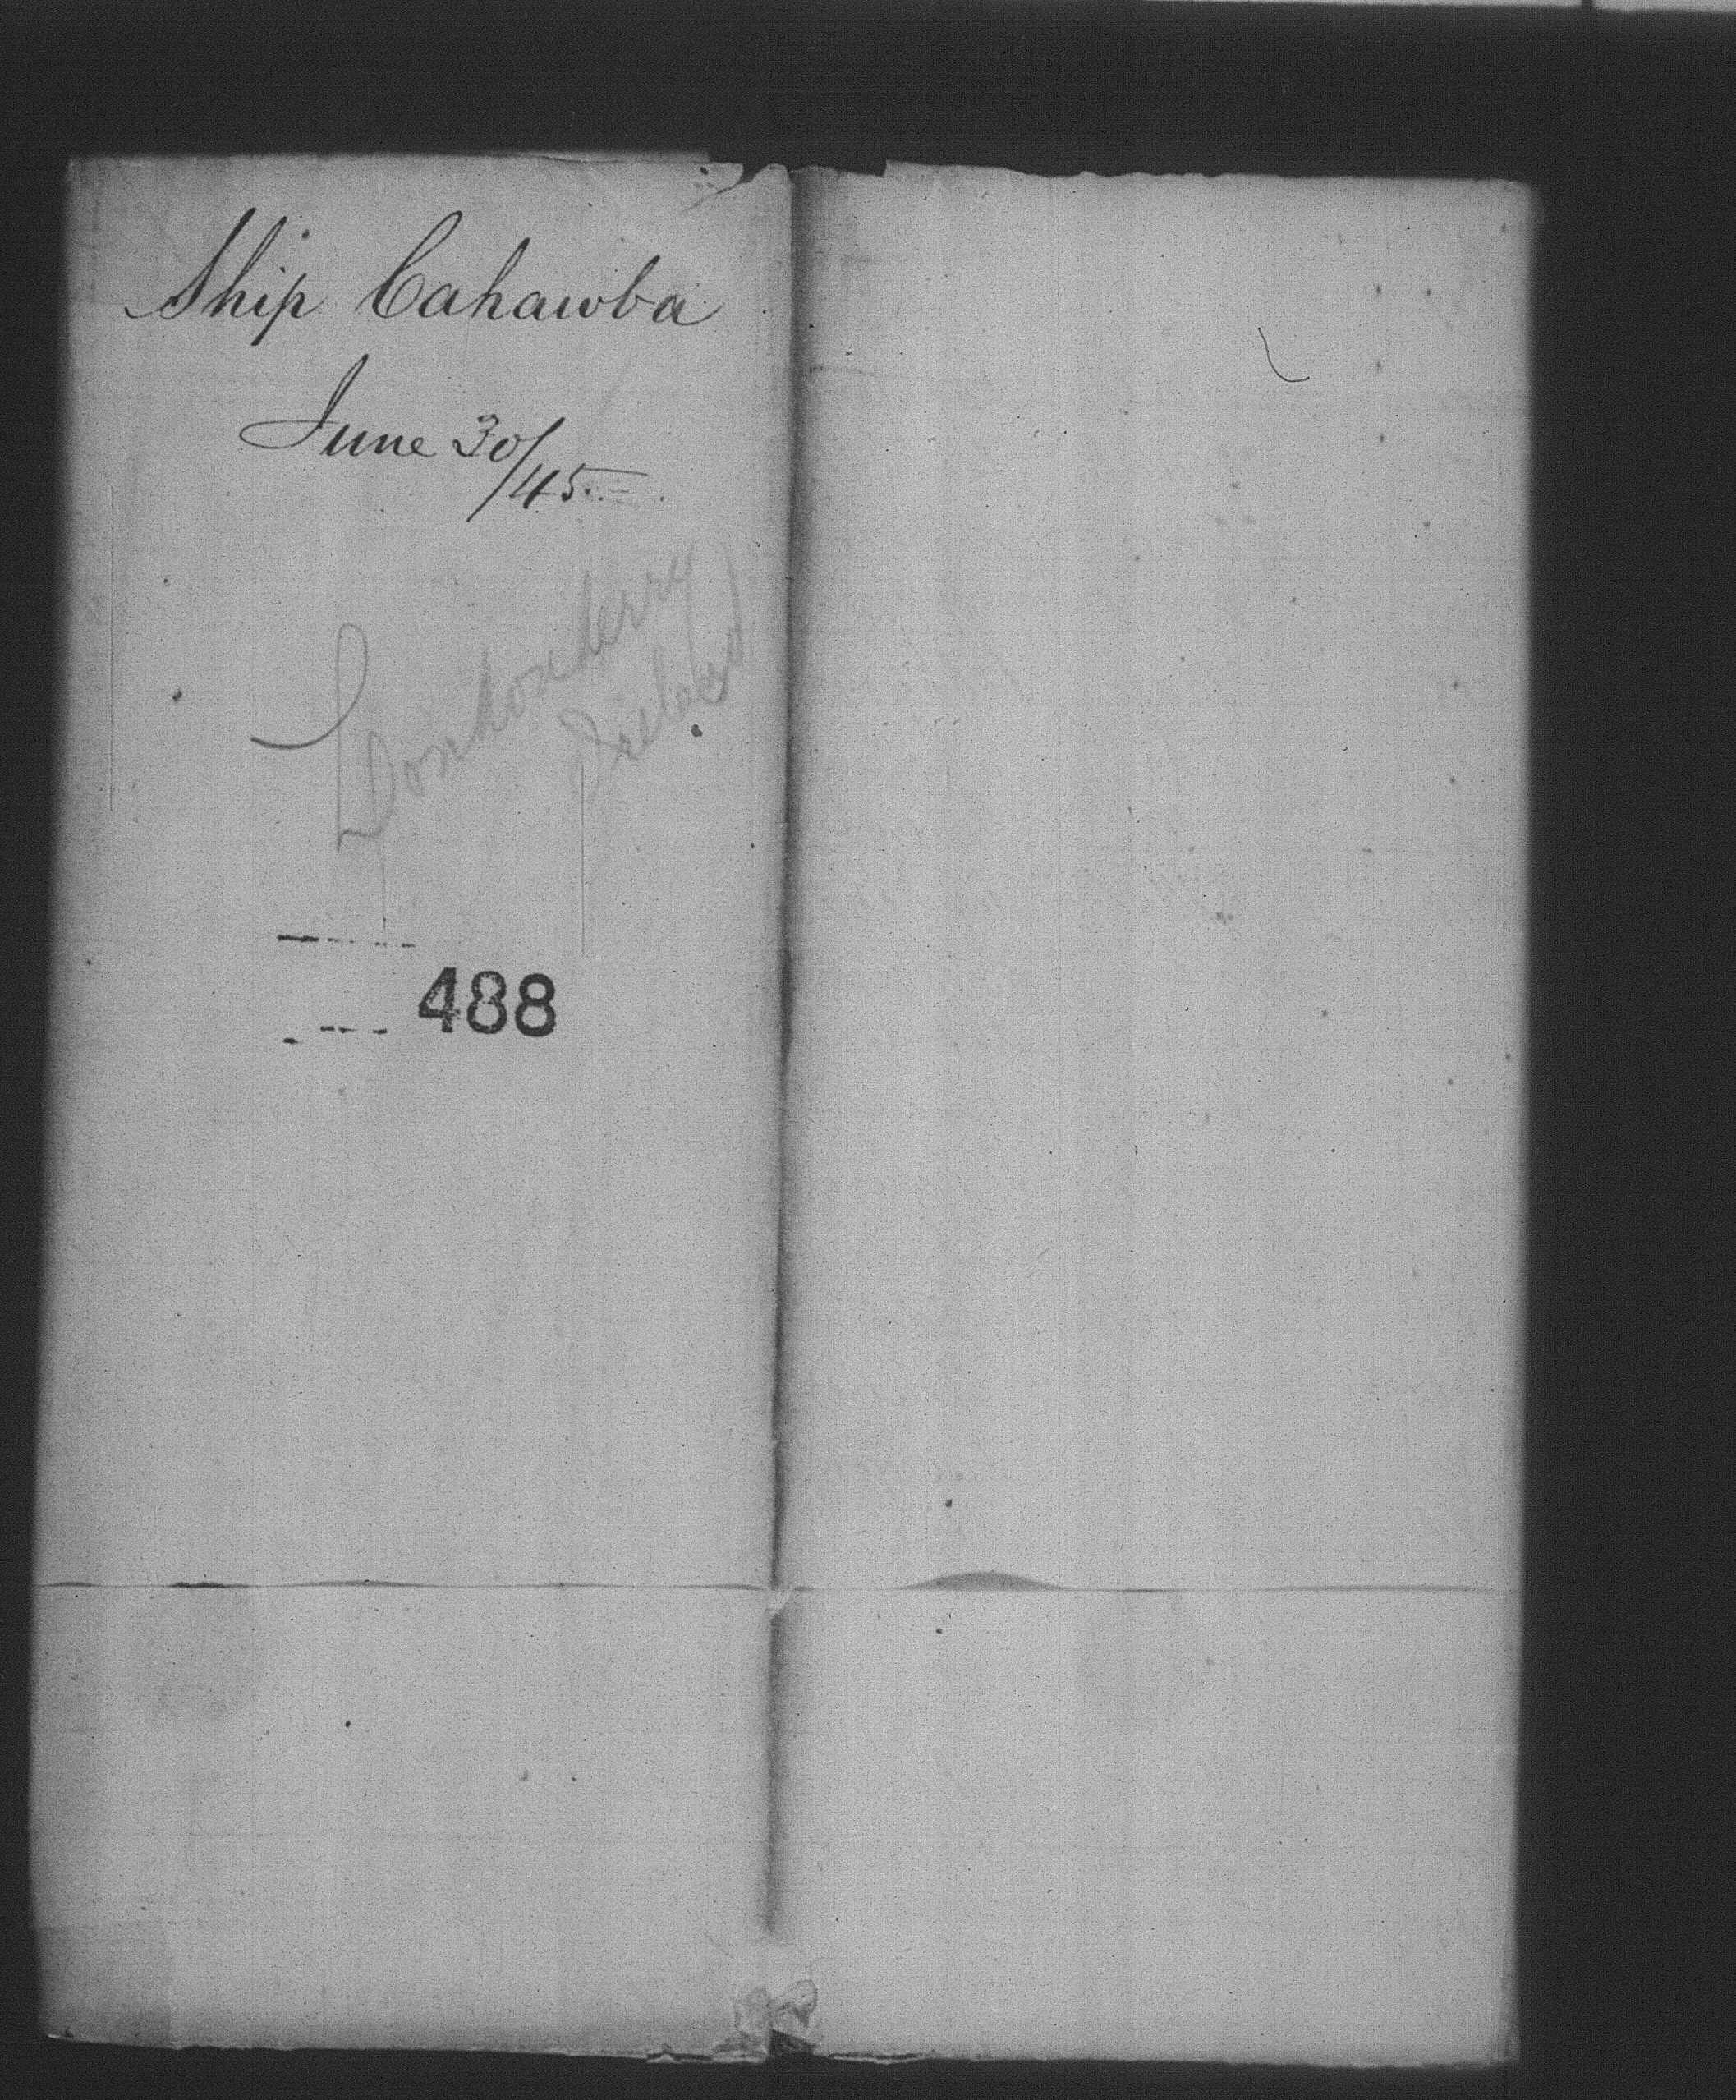 Ship Cahawba
June 30/45
Londonderry
Ireland
488